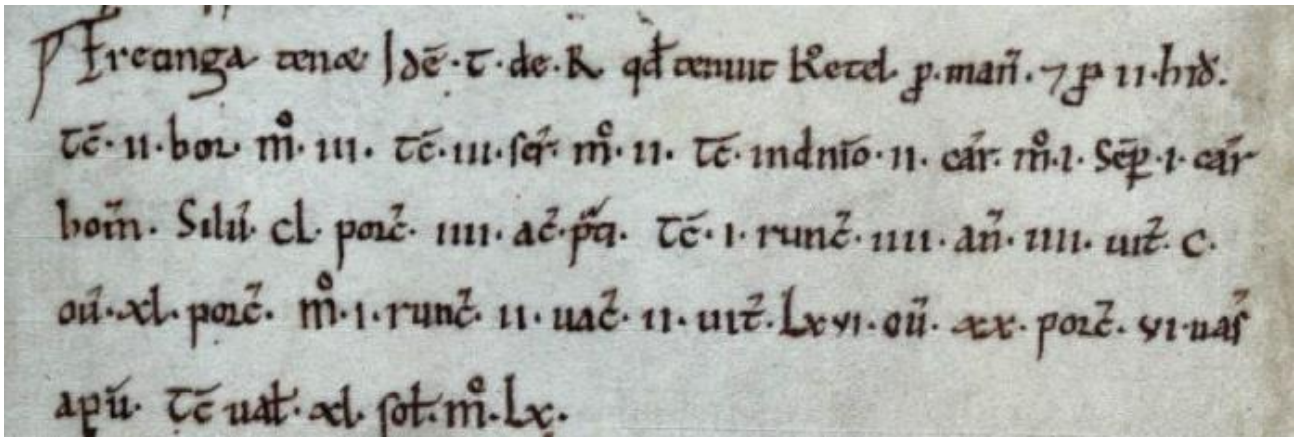 Freanga tenæ Idē·T·de·R qđ tenuit Ketel p̱·mañ·⁊ p̱ II·hid̄·
Tc̄·II·bor m̊·III· Tc̄·III·ser̄· m̊·II· Tc̄·indnīo·II· car̄· m̊·I· Sēp̱·I·car̄
hom̄· Silu̅· CL porc̄· IIII· ac̄·p̄ti· Tc̄·I·runc̄·IIII·añ·IIII·uit̄·C·
ou̅·XL·porc̄· m̊·I·runc̄·II·uac̄·II·uit̄·LXVI·ou̅·XX·porc̄·VI·uas̄
apu̅· Tc̄ ual̄·XL·sol̄·m̊·LX·